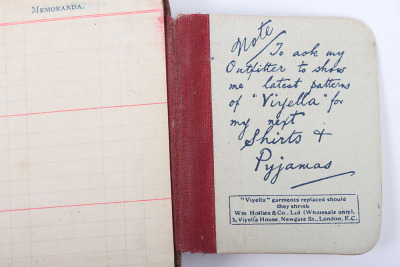 MEMORANDA.
Note
To ask my
Outfitter to show
me latest patterns
of "Viyella" for
my next
Shirts &
Pyjamas
"Viyella" garments replaced should
they shrink
Wm Hollins & Co., Ltd (Wholesale only),
3, Viyella House, Newgate St., London, E.C.